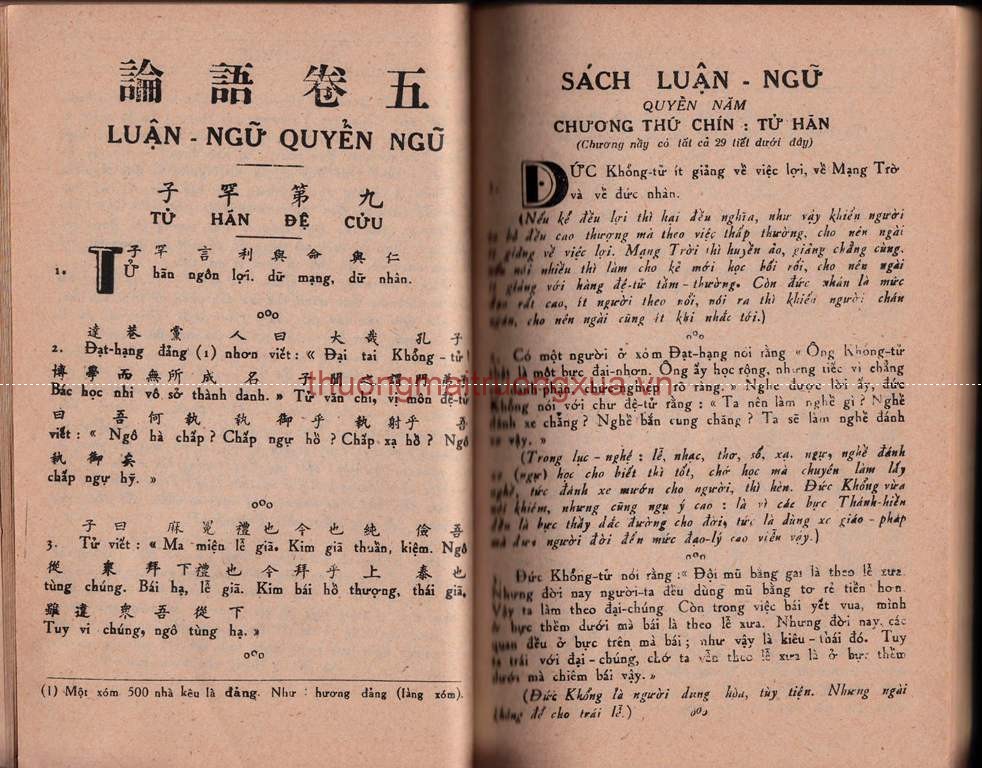 論語卷五
LUẬN - NGỮ QUYỂN NGŨ
子罕第九
TỬ HÃN ĐỆ CỬU
子罕言利與命與仁
1. TỬ hãn ngôn lợi. dữ mạng, dữ nhân.
達巷黨人曰大哉孔子
2. Đạt-hạng đảng (1) nhơn viết: « Đại tai Khổng-tử!
博學而無所成名子聞之謂門
Bác học nhi vô sở thành danh. » Tử văn chi, vị môn đệ-tử
曰吾何執執御乎執射乎吾
viết: « Ngô hà chấp? Chấp ngự hồ? Chấp xạ hồ? Ngô
執御矣
chấp ngự hỹ. »
子曰麻冕禮也今也純儉吾
3. Tử viết: « Ma miện lễ giã. Kim giã thuần, kiệm. Ngô
從衆拜下禮也今拜乎上泰也
tùng chúng. Bái hạ, lễ giã. Kim bái hồ thượng, thái giã.
雖違衆吾從下
Tuy vi chúng, ngô tùng hạ. »
(1) Một xóm 500 nhà kêu là đảng. Như : hương đảng (làng xóm).
SÁCH LUẬN - NGỮ
QUYỂN NĂM
CHƯƠNG THỨ CHÍN : TỬ HÃN
(Chương nầy có tất cả 29 tiết dưới đây)
ĐỨC Khổng-tử ít giảng về việc lợi, về Mạng Trời
và về đức nhân.
(Nếu kể đều lợi thì hại đều nghĩa, như vậy khiến người
ta bỏ đều cao thượng mà theo việc thấp thường, cho nên ngài
ít giảng về việc lợi. Mạng Trời thì huyền ảo, giảng chẳng cùng.
nói nhiều thì làm cho kẻ mới học bối rối, cho nên ngài
ít giảng với hàng đệ-tử tầm-thường. Còn đức nhân là mức
rất cao, ít người theo nổi, nói ra thì khiến người chán
cho nên ngài cũng ít khi nhắc tới.)
Có một người ở xóm Đạt-hạng nói rằng « Ông Khổng-tử
là một bực đại-nhơn. Ông ấy học rộng, nhưng tiếc vì chẳng
thành phận chức nghiệp rõ ràng. » Nghe được lời ấy, đức
Khổng nói với chư đệ-tử rằng : « Ta nên làm nghề gì ? Nghề
đánh xe chăng ? Nghề bắn cung chăng ? Ta sẽ làm nghề đánh
xe vậy. »
(Trong lục - nghệ : lễ, nhạc, thơ, số, xạ, ngự, nghề đánh
xe (ngự) học cho biết thì tốt, chớ học mà chuyên làm lấy
nghề, tức đánh xe mướn cho người, thì hèn. Đức Khổng vừa
nói khiêm, nhưng cũng ngụ ý cao : là vì các bực Thánh-hiền
đều là bực thầy dắc đường cho đời, tức là dùng xe giáo - pháp
mà đưa người đời đến mức đạo-lý cao viễn vậy.)
Đức Khổng-tử nói rằng : « Đội mũ bằng gai là theo lễ xưa.
Nhưng đời nay người-ta đều dùng mũ bằng tơ rẻ tiền hơn.
Vậy ta làm theo đại-chúng Còn trong việc bái yết vua, mình
ở bực thềm dưới mà bái là theo lễ xưa. Nhưng đời nay, các
quan đều ở bực trên mà bái ; như vậy là kiêu - thái đó. Tuy
ta trái với đại - chúng, chớ ta vẫn theo lễ xưa là ở bực thềm
dưới mà chiêm bái vậy. »
(Đức Khổng là người dung hòa, tùy tiện. Nhưng ngài
không để cho trái lễ.)
thuongmaitruongxua.vn